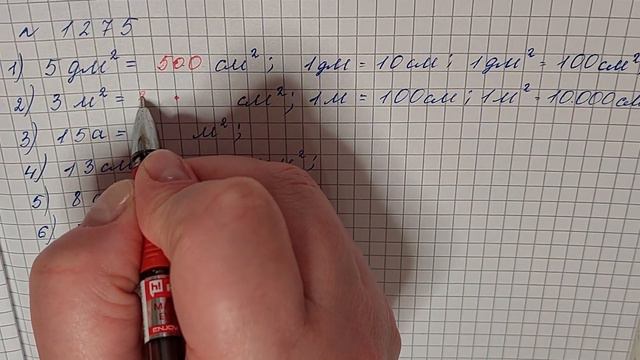 № 1275
1) 5 дм² = 500 см²; 1дм = 10см; 1дм² = 100см²
2) 3 м² = см²; 1м = 100см; 1м² = 10.000см
3) 15а = м²;
4) 13см
5) 8
6)
ENJOY